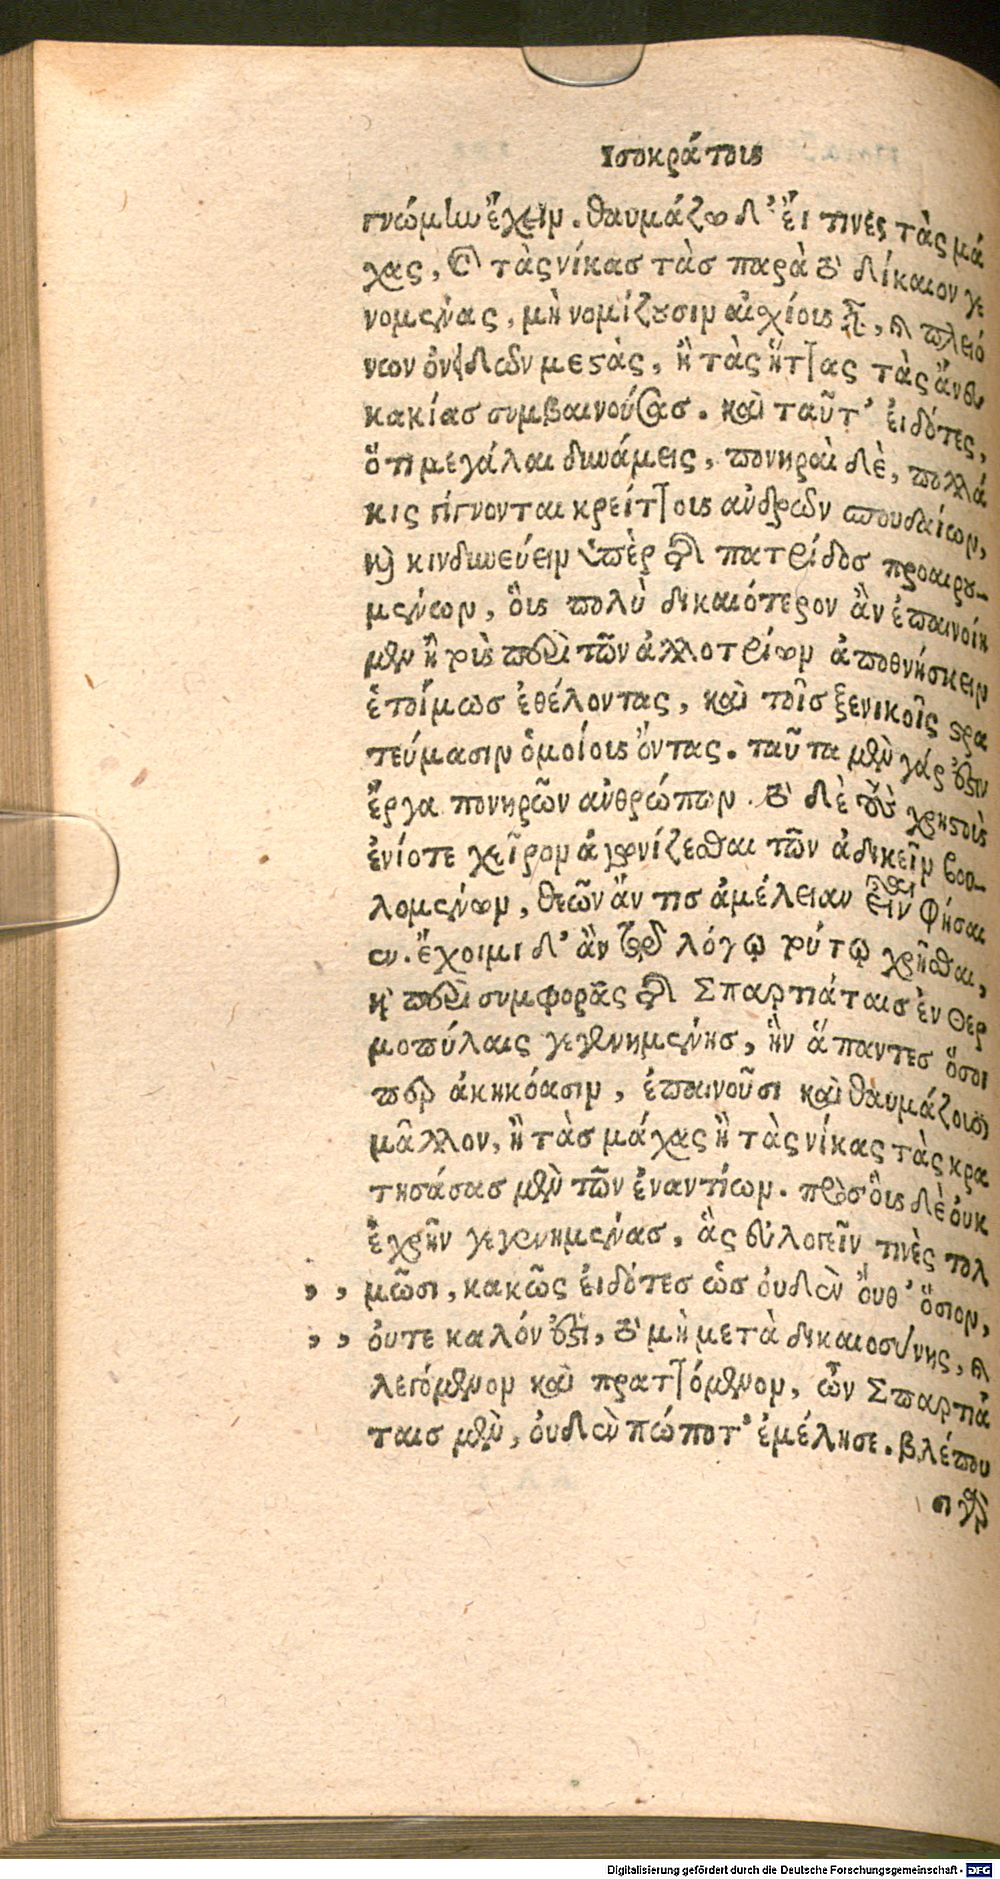 Ισοκράτους
γνώμην ἔχειν. θαυμάζω δ' ἔι τινὲς τὰς μά
χας, καὶ τὰς νίκας τὰς παρὰ τὸ δίκαιον γε
νομένας, μὴ νομίζουσιν αἰσχίους εἶναι, καὶ πλειό
νων ὀνειδῶν μεστὰς, ἢ τὰς ἥττας τὰς ἄνευ
κακίας συμβαινούσας. καὶ ταῦτ' ἐιδότες,
ὅτι μεγάλαι δυνάμεις, πονηραὶ δὲ, πολλά
κις γίγνονται κρείττους ἀνδρῶν σπουδαίων,
καὶ κινδυνεύειν ὑπὲρ τῆς πατρίδος προαιρου-
μένων, ὃυς πολὺ δικαιότερον ἂν ἐπαινοίη
μεν ἢ τοὺς περὶ τῶν ἀλλοτρίων ἀποθνήσκειν
ἑτοίμως ἐθέλοντας, καὶ τοῖς ξενικοῖς στρα
τεύμασιν ὁμοίους ὄντας. ταῦτα μὲν γάρ ἐστιν
ἔργα πονηρῶν ἀνθρώπων. τὸ δὲ τοὺς χρηστοὺς
ἐνίοτε χεῖρον ἀγωνίζεσθαι τῶν ἀδικεῖν βου-
λομένων, θεῶν ἄν τις ἀμέλειαν εἶναι φήσαι
εν. ἔχοιμι δ' ἂν τῷ λόγῳ τούτῳ χρῆσθαι,
καὶ περὶ συμφορᾶς τῆς Σπαρτιάταις ἐν Θερ
μοπύλαις γεγενημένης, ἣν ἅπαντες ὅσοι
περ ἀκηκόασιν, ἐπαινοῦσι καὶ θαυμάζουσι
μᾶλλον, ἢ τὰς μάχας ἢ τὰς νίκας τὰς κρα
τησάσας μὲν τῶν ἐναντίων. πρὸς ὃυς δὲ ὀυκ
ἐχρῆν γεγενημένας, ἃς εὐλογεῖν τινὲς τολ
,, μῶσι, κακῶς ἐιδότες ὡς ὀυδὲν ὄυθ' ὅσιον,
,, ὀυτε καλόν ἐστι, τὸ μὴ μετὰ δικαιοσύνης, καὶ
λεγόμενον καὶ πραττόμενον, ὧν Σπαρτιά
ταις μὲν, ὀυδὲν πώποτ' ἐμέλησε. βλέπου
σι γὰρ
Digitalisierung gefördert durch die Deutsche Forschungsgemeinschaft - DFG